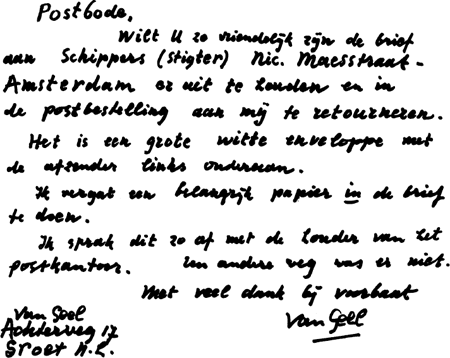 Postbode,
Wilt U zo vriendelijk zijn de brief
aan Schippers (Stigter) Nic. Maesstraat-
Amsterdam er uit te houden en in
de postbestelling aan mij te retourneren.
Het is een grote witte enveloppe met
de afzender links onderaan.
Ik vergat een belangrijk papier in de brief
te doen.
Ik sprak dit zo af met de houder van het
postkantoor. Een andere weg was er niet.
Met veel dank bij voorbaat
Van Goel
Achterweg 17
Groet N.H.